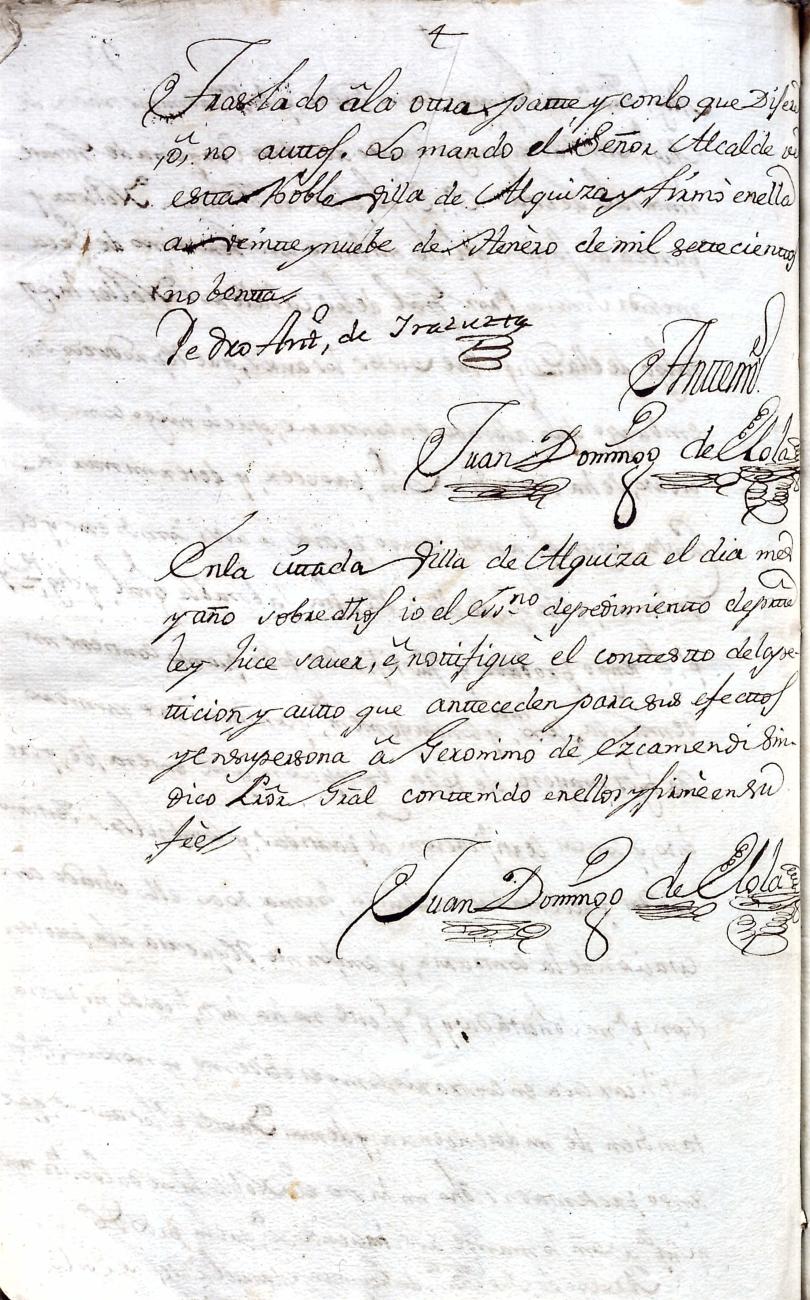 4
Traslado â la otra partte y con lo que Dijere
ô, no auttos. Lo mando el Señor Alcalde de
estta Noble Villa de Alquiza y firmò en ella
a veintte y nuebe de Henèro de mil settecienttos
nobentta
Pedro Antᵒ, de Irazuzta
Anttemi
Juan Domingo de Elola
En la cittada Villa de Alquiza el dia mes
y año sobredhos io el Essno de pedimientto de partte
ley hice saver, ê, nottifiquè el conttestto de la pe-
tticion y autto que antteceden para sus efecttos
y en su persona â Geronimo de Ezcamendi Sin-
dico Prōr Grāl conttenido en ellos y firmè en su
fèe
Juan Domingo de Elola